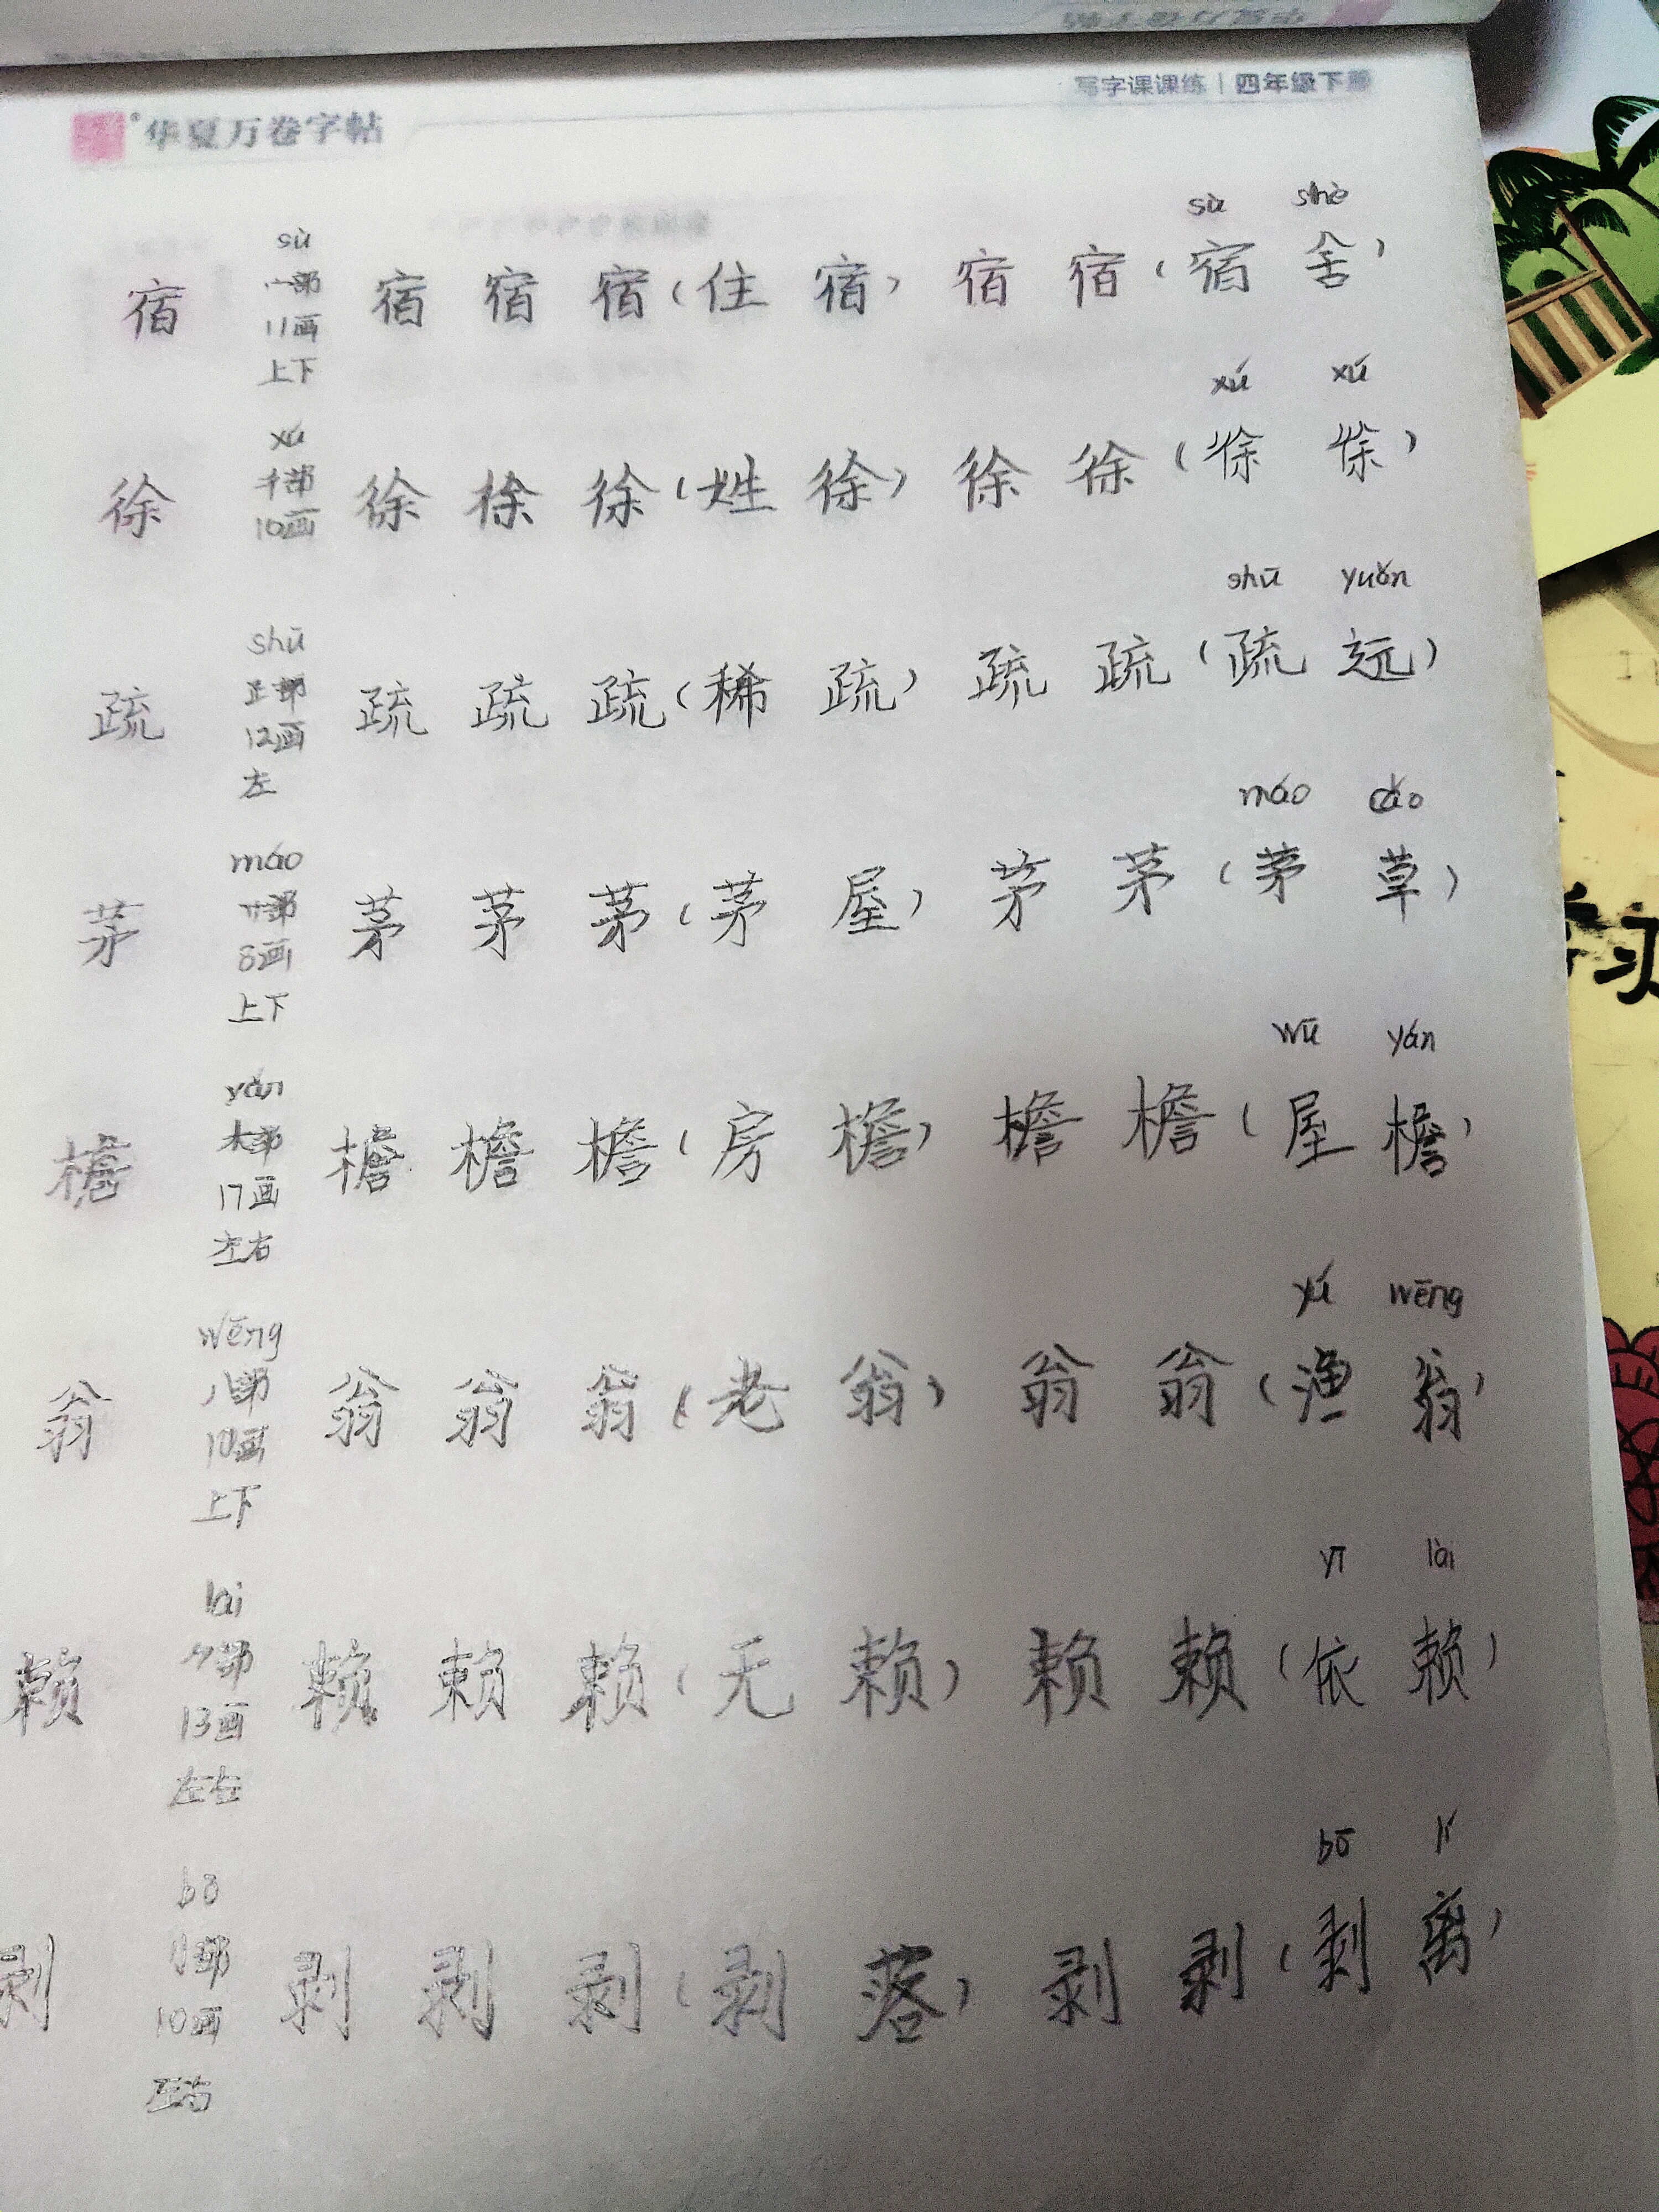 华夏万卷字帖
写字课课练 | 四年级下册
sù shè
sù
宿 宿 宿 宿 (住 宿) 宿 宿 (宿 舍)
宀部
11画
上下
xú xú
xú
徐 徐 徐 徐 (姓 徐) 徐 徐 (徐 徐)
彳部
10画
shū yuǎn
shū
疏 疏 疏 疏 (稀 疏) 疏 疏 (疏 远)
12画
左
máo cǎo
máo
茅 茅 茅 茅 (茅 屋) 茅 茅 (茅 草)
艹部
8画
上下
wū yán
yán
檐 檐 檐 檐 (房 檐) 檐 檐 (屋 檐)
木部
17画
左右
yú wēng
wēng
翁 翁 翁 翁 (老 翁) 翁 翁 (渔 翁)
八部
10画
上下
yī lài
lài
赖 赖 赖 赖 (无 赖) 赖 赖 (依 赖)
13画
左右
bō lí
bō
剥 剥 剥 剥 (剥 落) 剥 剥 (剥 离)
刂部
10画
左右